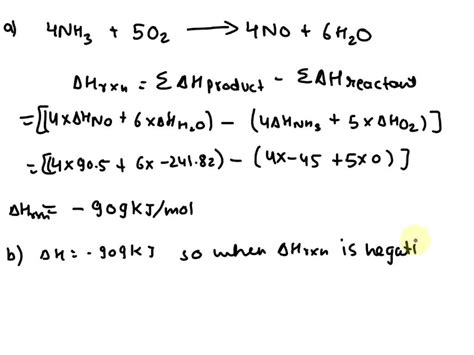 a) 4NH₃ + 5O₂ ⟶ 4NO + 6H₂O
ΔHrxn = Σ ΔHproduct - Σ ΔHreactant
=[[4xΔHNO + 6xΔHH₂O) - (4ΔHNH₃ + 5xΔHO₂)]
=[[4x90.5 + 6x-241.82) - (4x-45 + 5x0)]
ΔHrxn= - 909KJ/mol
b) ΔH=-909KJ so when ΔHrxn is negati